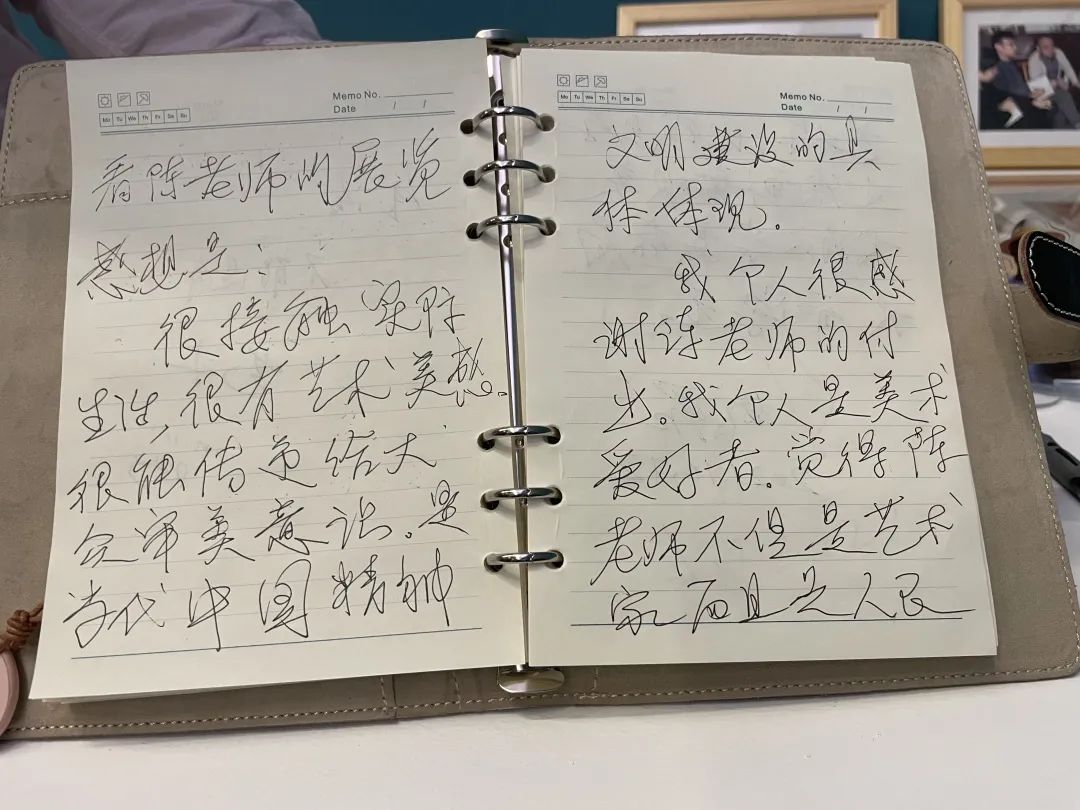 Memo No.
Date / /
Mo Tu We Th Fr Sa Su
看陈老师的展览
感想是：
很接触实际
生活，很有艺术美感。
很能传递给大
会审美意识。是
当代中国精神
Memo No.
Date / /
Mo Tu We Th Fr Sa Su
文明建设的具
体体现。
我个人很感
谢陈老师的付
出。我个人是美术
爱好者。觉得陈
老师不但是艺术
家而且是人民